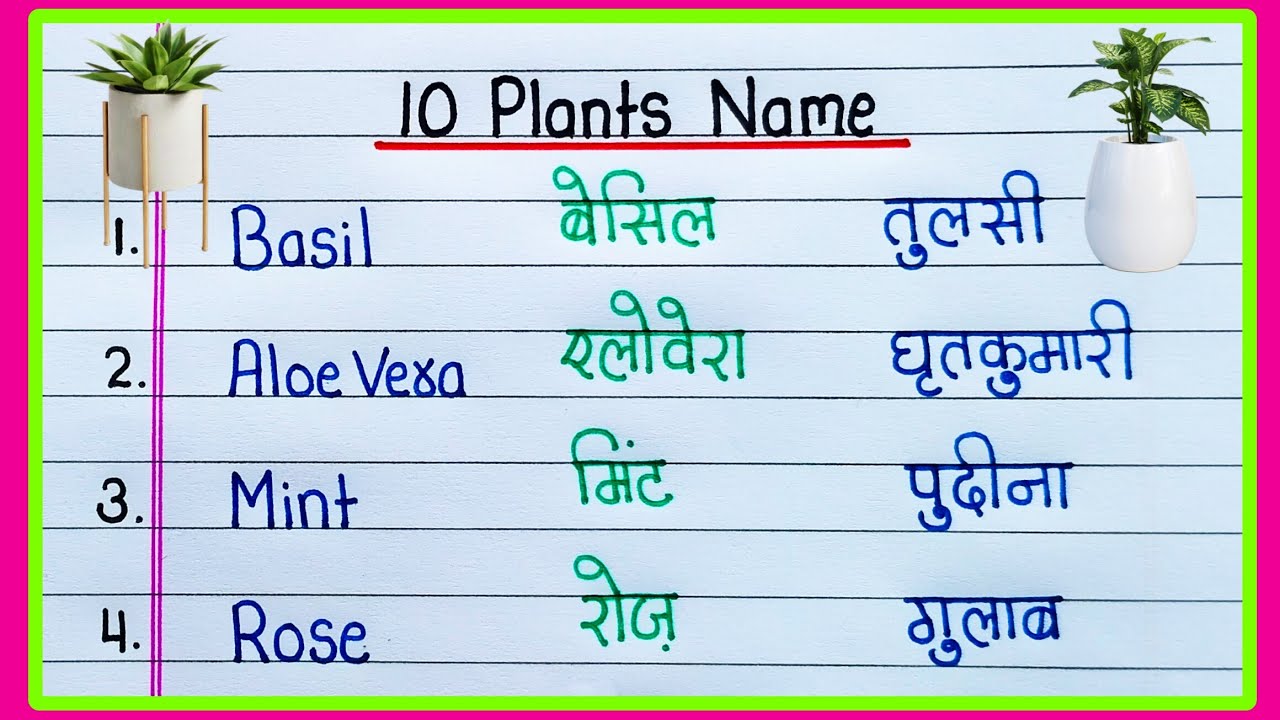 10 Plants Name
1. Basil बेसिल तुलसी
2. Aloe Vera एलोवेरा घृतकुमारी
3. Mint मिंट पुदीना
4. Rose रोज़ गुलाब